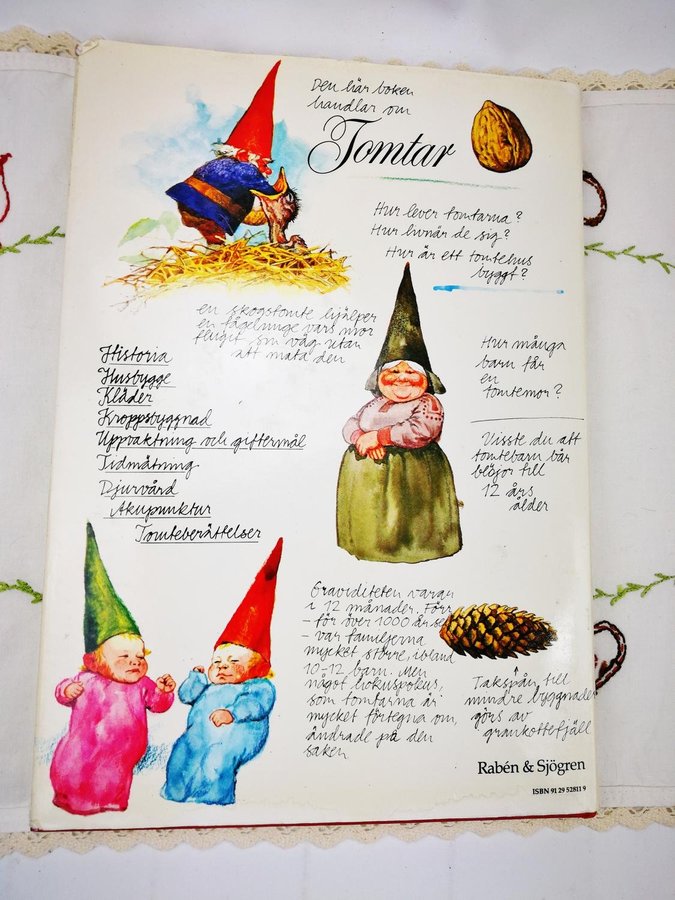 Den här boken
handlar om
Tomtar
Hur lever tomtarna?
Hur livnär de sig?
Hur är ett tomtehus
byggt?
en skogstomte hjälper
en fågelunge vars mor
flugit sin väg utan
att mata den
Historia
Husbygge
Kläder
Kroppsbyggnad
Uppvaktning och giftermål
Tidmätning
Djurvård
Akupunktur
Tomteberättelser
Hur många
barn får
en
tomtemor?
Visste du att
tomtebarn bär
blöjor till
12 års
ålder
Graviditeten varar
i 12 månader. Förr
- för över 1000 år sen
- var familjerna
mycket större, ibland
10-12 barn. Men
något hokuspokus,
som tomtarna är
mycket förtegna om,
ändrade på den
saken
Takspån till
mindre byggnader
görs av
grankottefjäll
Rabén & Sjögren
ISBN 91 29 52811 9